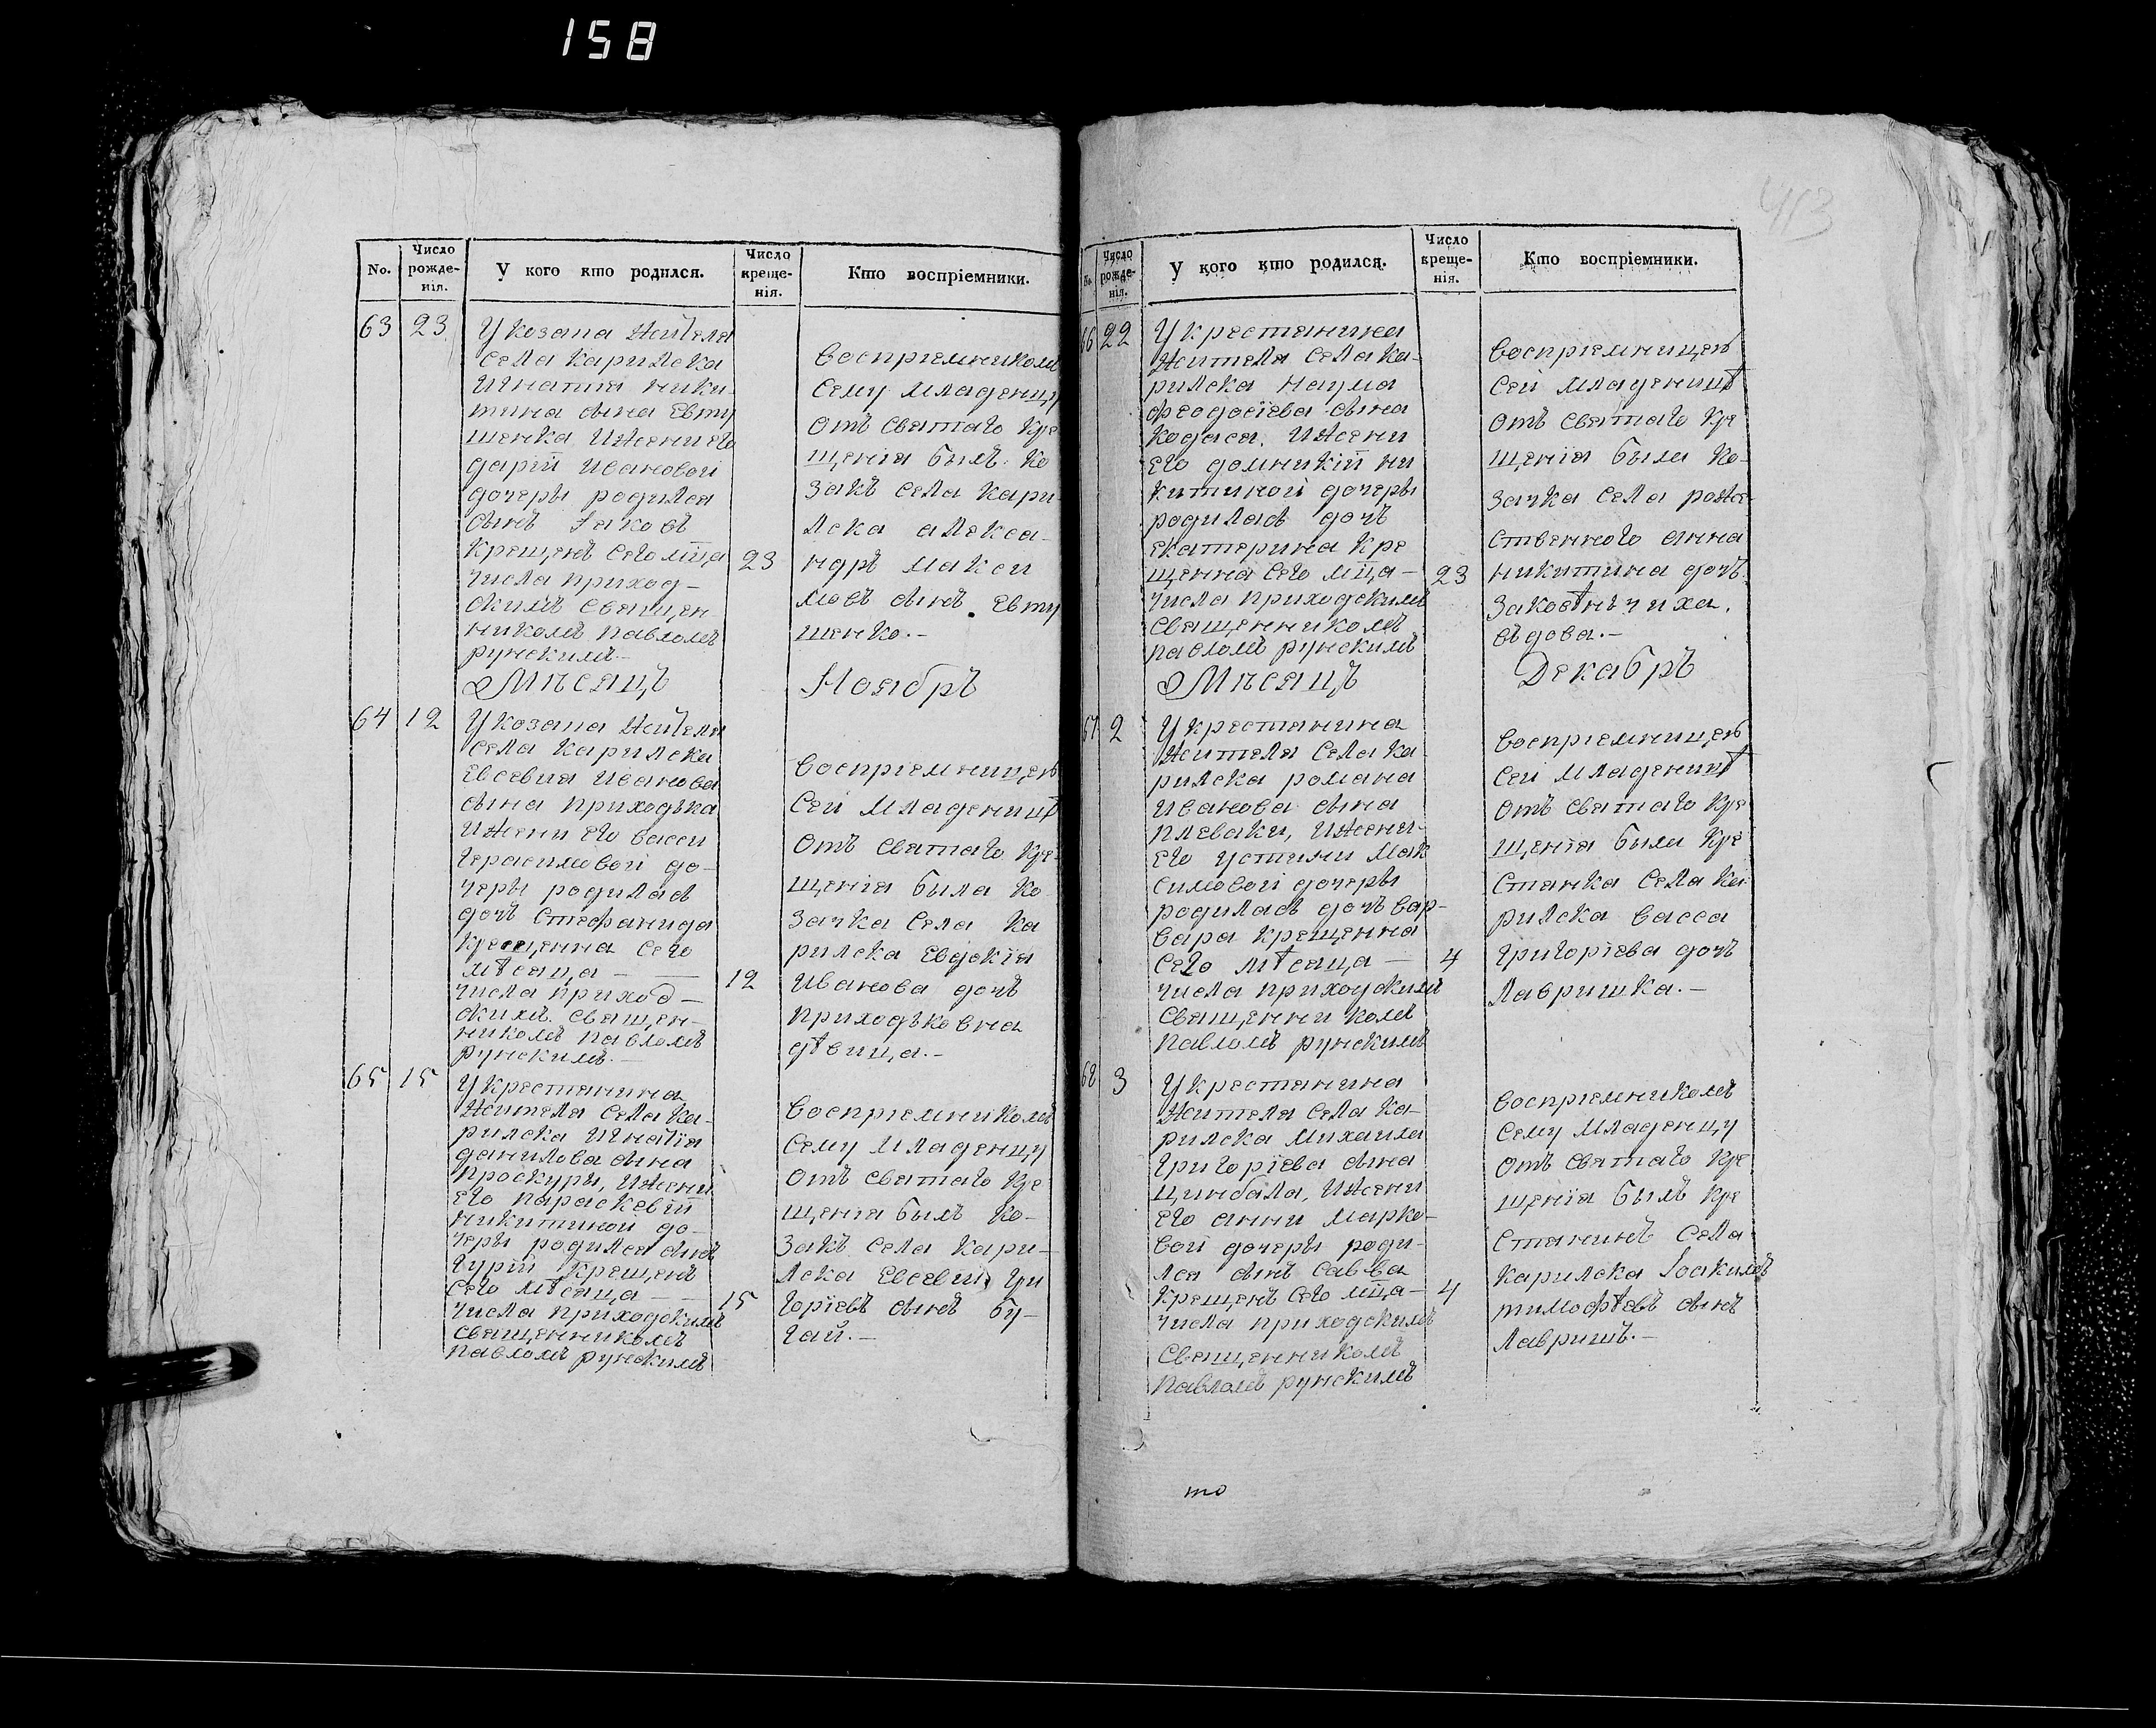 158
413
No.
Число рожде-нія.
У кого кто родился.
Число креще-нія.
Кто воспріемники.
63 23
У козака жителя
села карилска
Игнатія ники-
тина сына Евту
шенка, Ижени его
даріи Ивановой
дочеры родился
сынъ Іаковъ
крещенъ сего мца 23
числа приход-
скимъ священ
никомъ павломъ
рунскимъ.-
Воспріемникомъ
Сему младенцу
Отъ святаго кре
щенія былъ ко
закъ села кари
лска алекса-
ндръ макси
мовъ сынъ Евту
шенко.-
Мѣсяцъ Ноябрь
64 12
У козака жителя
села карилска
Евсевия Иванова
сына приходька
Ижени его васси
герасимовой до-
черы родилась
дочь Стефанида
крещенна сего
мѣсяца - 12
числа приход-
скимъ. священ-
никомъ павломъ
рунскимъ.-
Воспріемницею
Сей младеницѣ
Отъ святаго кре-
щенія была ко
зачка села ка
рилска Евдокія
Иванова дочь
приходьковна
дѣвица.-
65 15
У крестянина
жителя села ка-
рилска Игнатія
данилова сына
проскуры, Ижени
его параскевіи
никитиной до-
черы родился сынъ
гурій крещенъ
сего мѣсяца - 15
числа приходскимъ
священникомъ
павломъ рунскимъ
Воспріемникомъ
Сему младенцу
Отъ святаго кре
щенія былъ ко-
закъ села кари-
лска Евсевий гри
горіевъ сынъ бу-
гай.-
No.
Число рожде-нія.
У кого кто родился.
Число креще-нія.
Кто воспріемники.
66 22
У крестянина
жителя села ка-
рилска наума
феодосіева сына
кодаса, Ижени
его домникіи ни
китиной дочеры
родилась дочь
екатерина кре
щенна сего мца - 23
числа приходскимъ
священникомъ
павломъ рунскимъ
Воспріемницею
Сей младеницѣ
Отъ святаго кре
щенія была ко-
зачка села рожде-
ственного анна
никитина дочь
вдова.-
Мѣсяцъ Декабрь
67 2
У крестянина
жителя села ка-
рилска романа
Иванова сына
плеваки, Ижени-
его устини мак
симовой дочеры
родилась дочь вар-
вара крещенна
сего мѣсяца - 4
числа приходскимъ
священникомъ
павломъ рунскимъ
Воспріемницею
Сей младеницѣ
Отъ святаго кре
щенія была кре
стянка села ка-
рилска васса
григоріева дочь
лавришка.-
68 3
У крестянина
жителя села ка-
рилска михаила
григоріева сына
цимбала, Ижени
его анни марко-
вой дочеры роди-
лся сынъ савва
крещенъ сего мца - 4
числа приходскимъ
священникомъ
павломъ рунскимъ
Воспріемникомъ
Сему младенцу
Отъ святаго кре
щенія былъ кре
стянинъ села
карилска Іоакимъ
тимофѣевъ сынъ
лавришъ.-
то